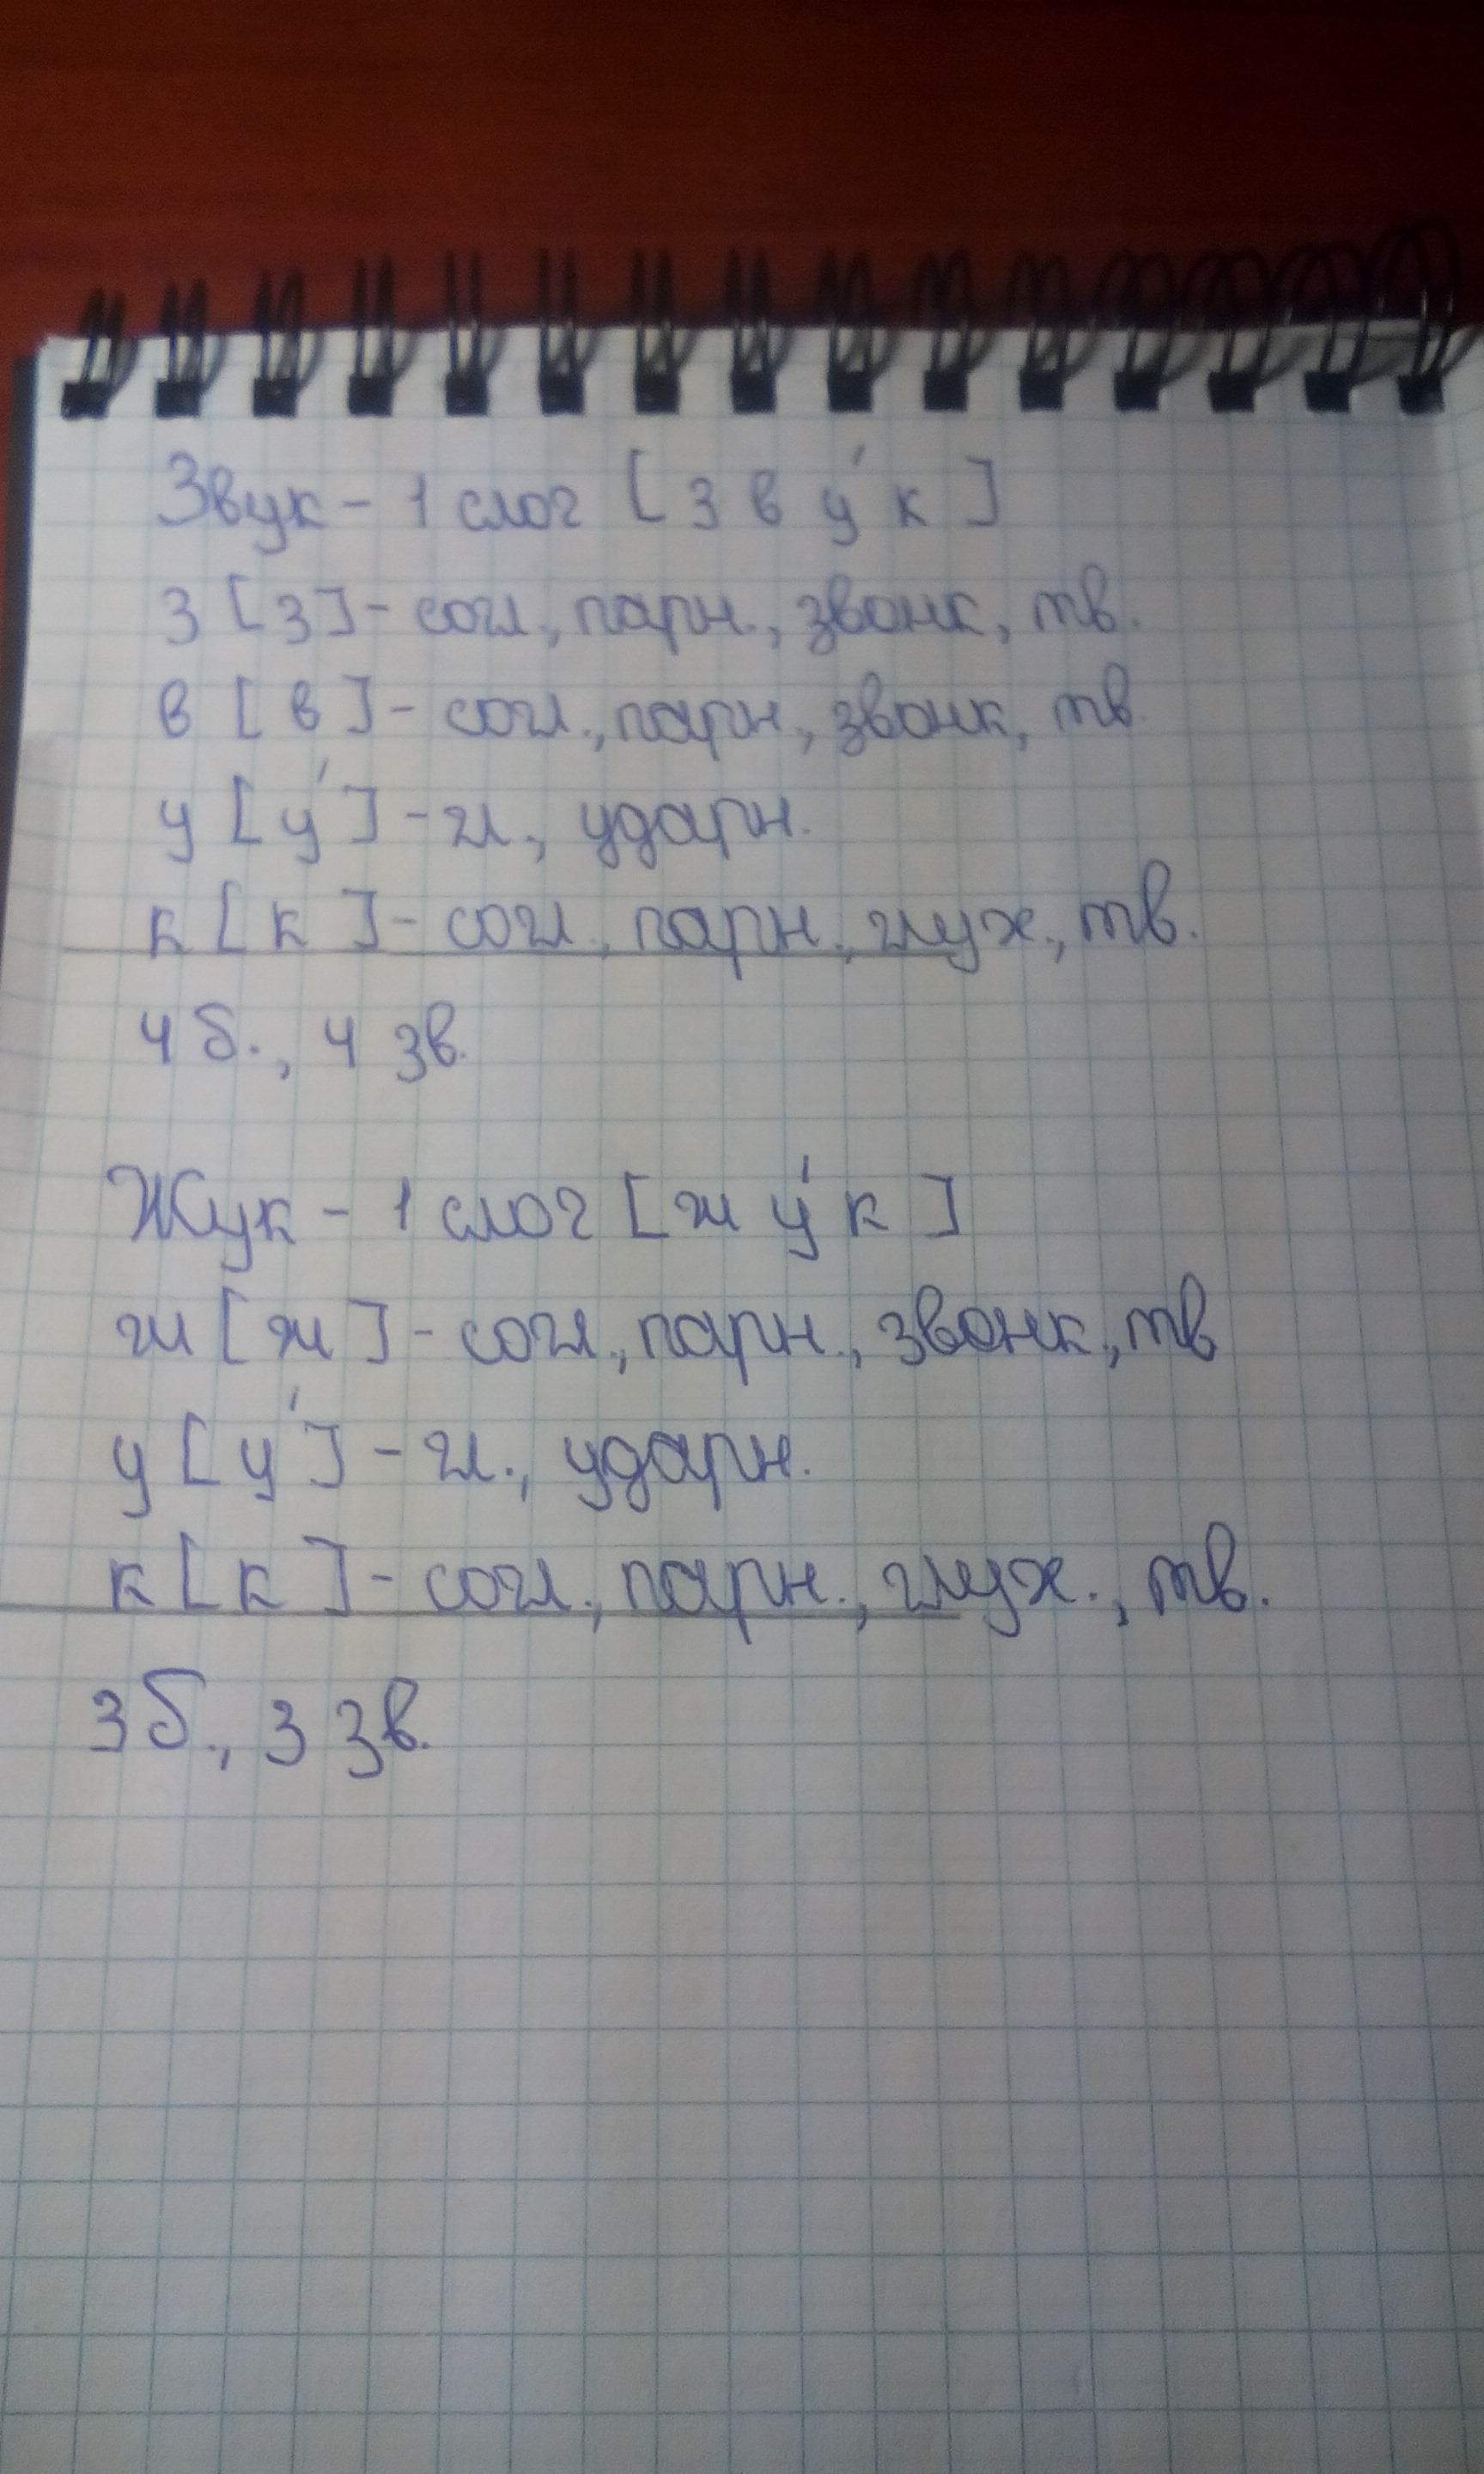 Звук - 1 слог [з в у́ к]
З [з] - согл., парн., звонк, тв.
в [в] - согл., парн., звонк, тв.
у [у́] - гл., ударн.
к [к] - согл., парн., глух., тв.
4 б., 4 зв.
Жук - 1 слог [ж у́ к]
ж [ж] - согл., парн., звонк., тв
у [у́] - гл., ударн.
к [к] - согл., парн., глух., тв.
3 б., 3 зв.